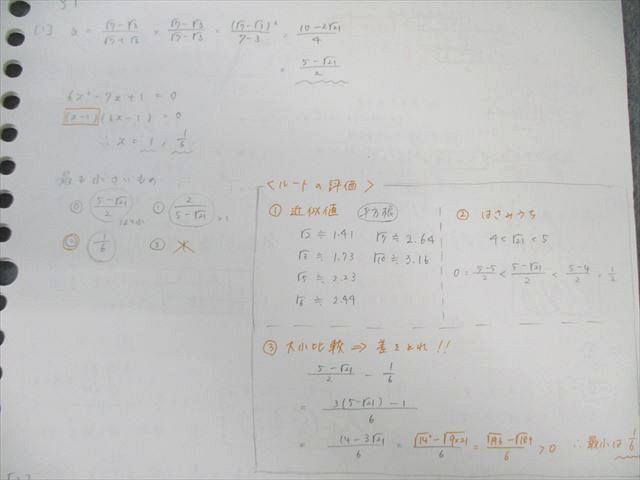 (1) a = (√7-√3)/(√7+√3) × (√7-√3)/(√7-√3) = (√7-√3)²/(7-3) = (10-2√21)/4
= (5-√21)/2
6x²-7x+1 = 0
(x-1)(6x-1) = 0
∴ x = 1, 1/6
最も小さいもの
⓪ (5-√21)/2 ① 2/(5-√21) >1
② 1/6 ③
<ルートの評価>
① 近似値
√2 ≒ 1.41 √7 ≒ 2.64
√3 ≒ 1.73 √10 ≒ 3.16
√5 ≒ 2.23
√6 ≒ 2.44
② はさみうち
4 < √21 < 5
0 = (5-5)/2 < (5-√21)/2 < (5-4)/2 = 1/2
③ 大小比較 ⇒ 差をとれ!!
(5-√21)/2 - 1/6
= (3(5-√21)-1)/6
= (14-3√21)/6 = (√14²-√9×21)/6 = (√196-√189)/6 > 0 ∴ 最小は 1/6